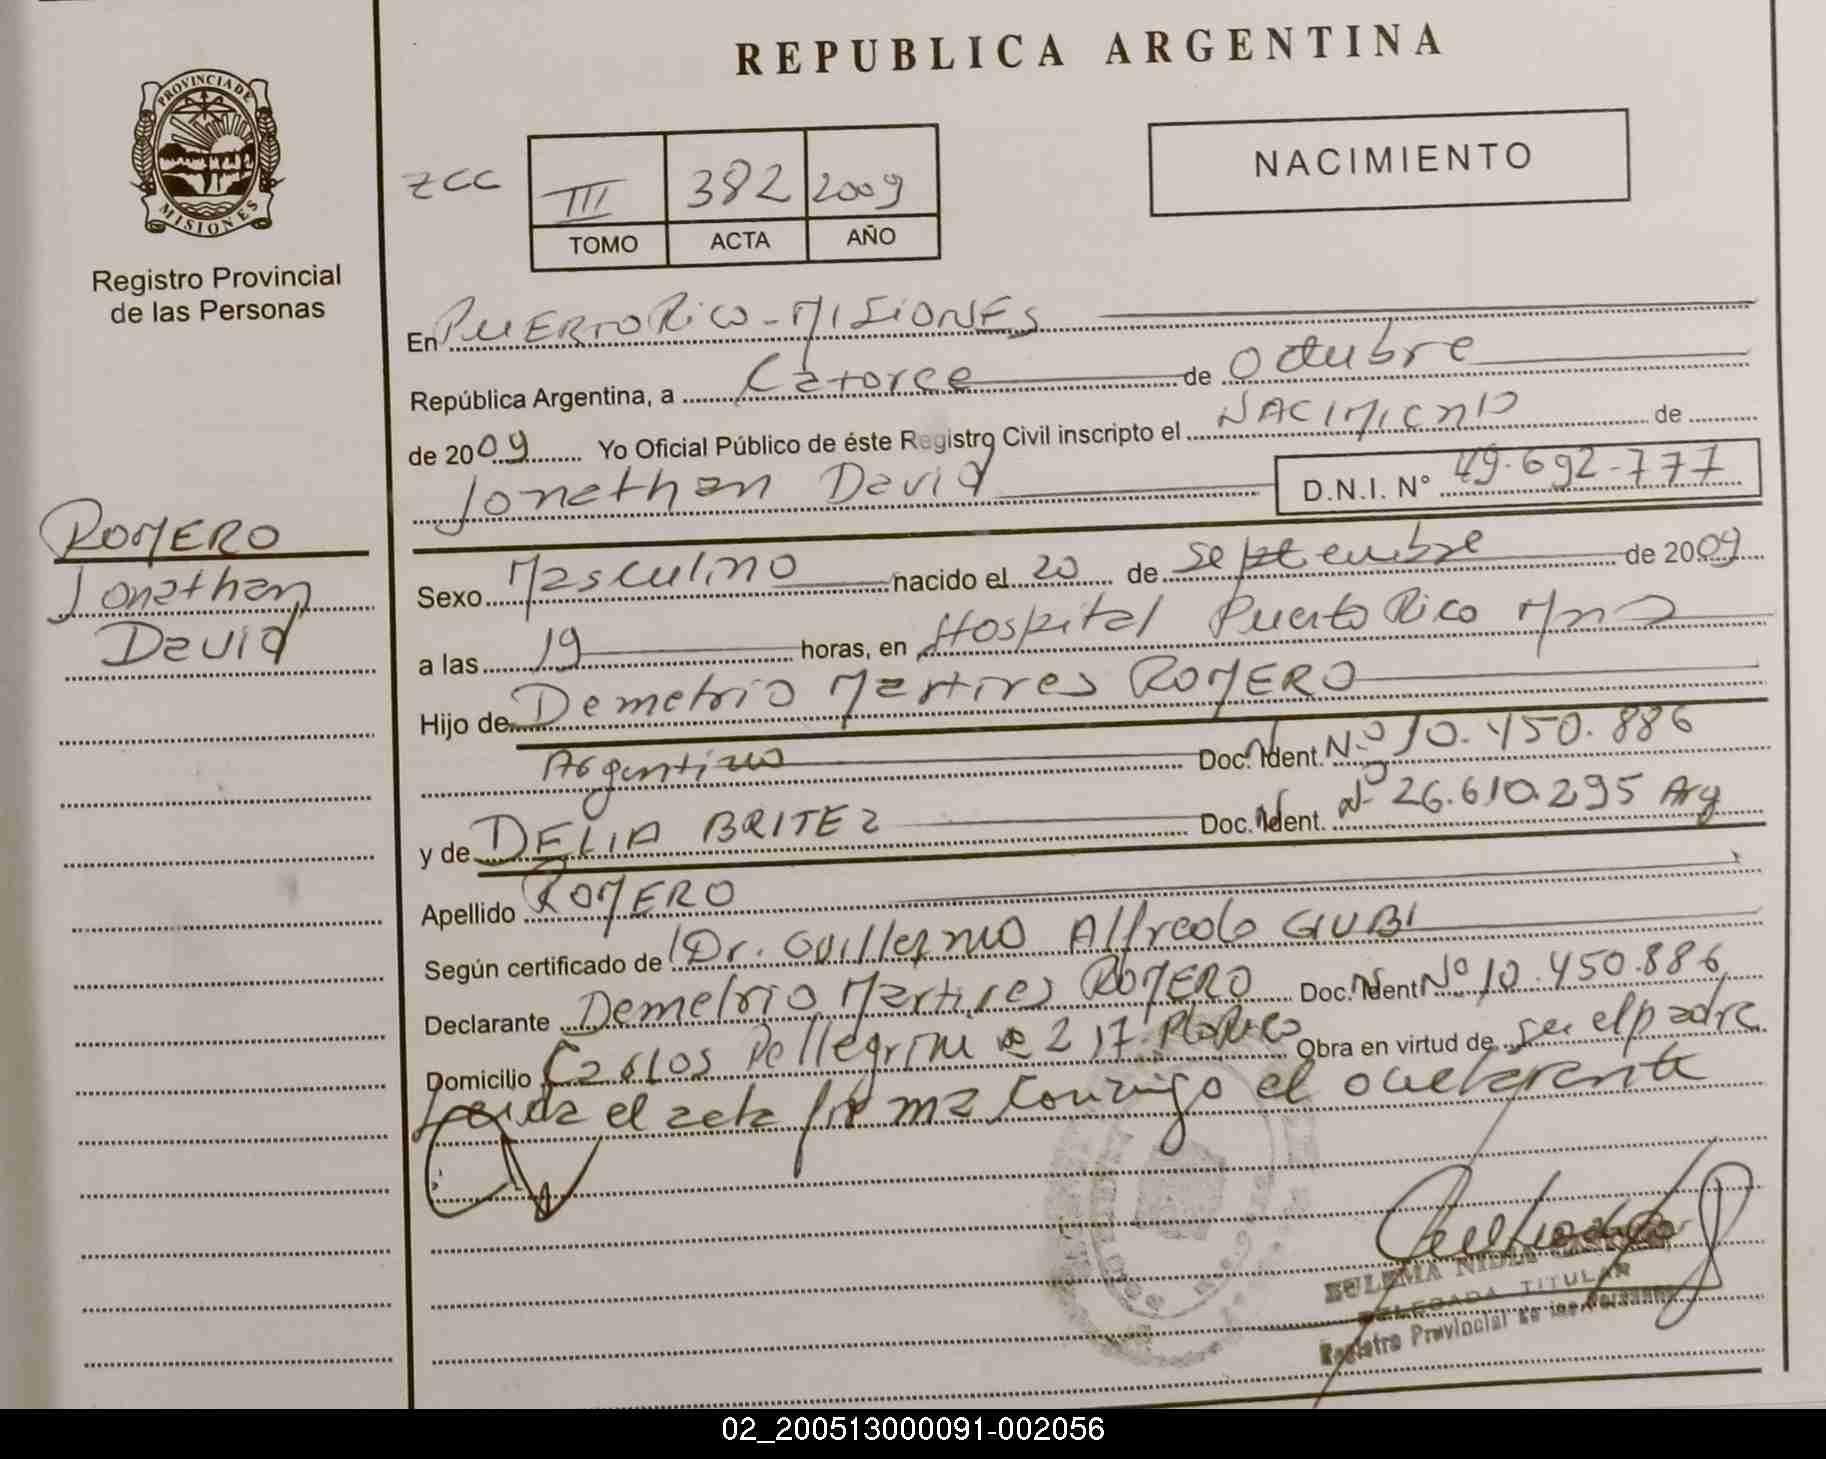 REPUBLICA ARGENTINA
PROVINCIA DE
MISIONES
Registro Provincial
de las Personas
NACIMIENTO
ZCC III 382 2009
TOMO ACTA AÑO
En PUERTO RICO - MISIONES
República Argentina, a Catorce de Octubre
de 2009 Yo Oficial Público de éste Registro Civil inscripto el NACIMIENTO de
Jonathan David D.N.I. N° 49.692.777
ROMERO
Jonathan
David
Sexo Masculino nacido el 20 de Septiembre de 2009
a las 19 horas, en Hospital Puerto Rico Mnes
Hijo de Demetrio Martires ROMERO
Argentino Doc. Ident. Nº 10.450.886
y de DELIA BRITEZ Doc. Ident. Nº 26.610.295 Arg
Apellido ROMERO
Según certificado de Dr. Guillermo Alfredo GIUBI
Declarante Demetrio Martires ROMERO Doc. Ident Nº 10.450.886
Domicilio Carlos Pellegrini 217 Pto Rico Obra en virtud de ser el padre
Leida el acta firma conmigo el declarante
ZULEMA NIDIA
DELEGADA TITULAR
Registro Provincial de las Personas
02_200513000091-002056